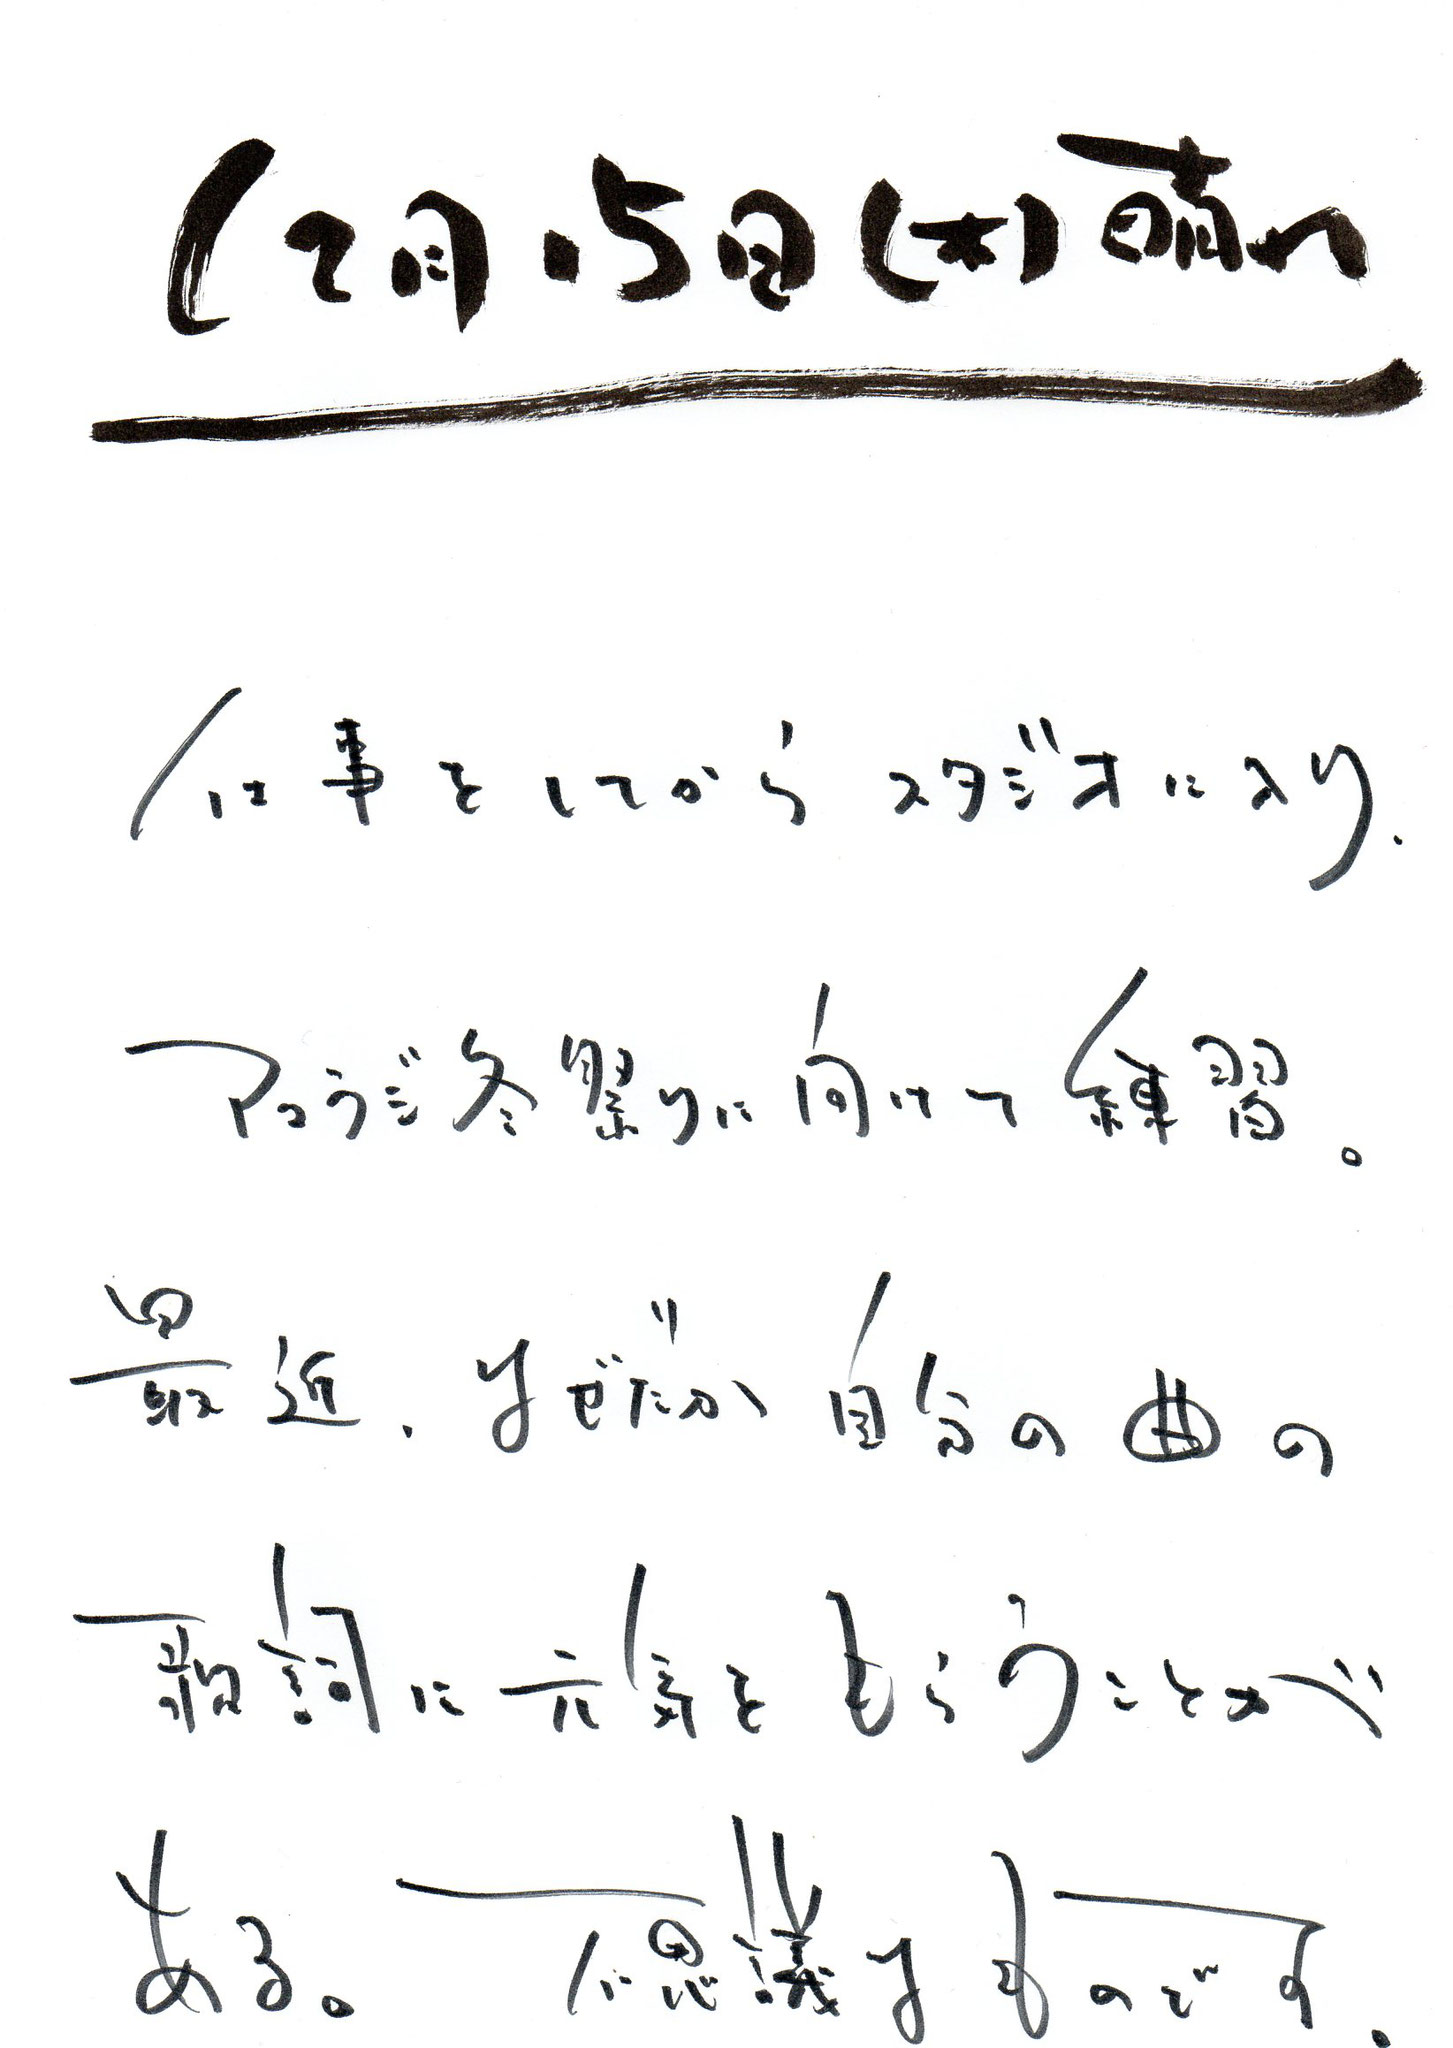 12月15日(木)晴れ
仕事をしてからスタジオに入り、
アコラジ冬祭りに向けて練習。
最近、なぜだか自分の曲の
歌詞に元気をもらうことが
ある。不思議なものです。